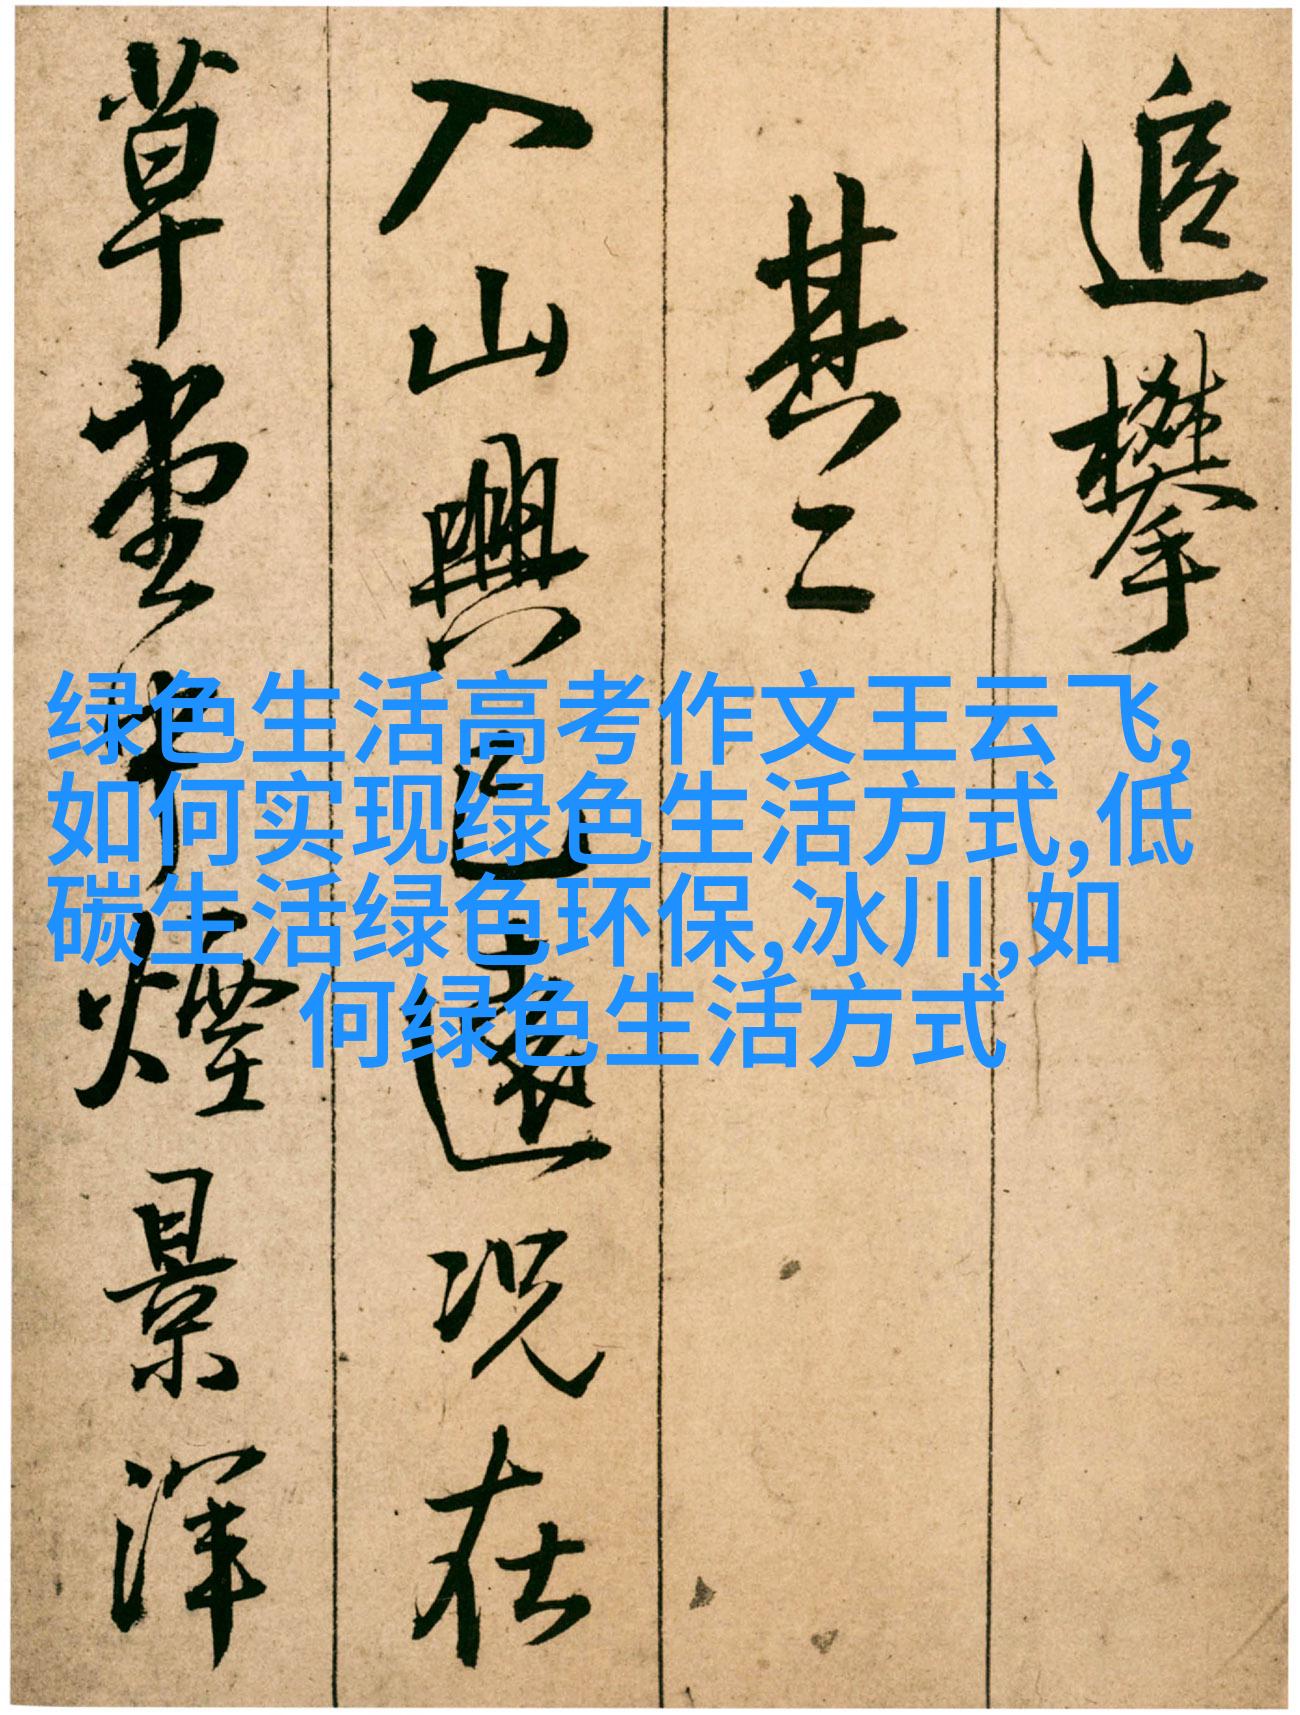 追攀
其二
入山興已遠况在
草堂中煙景渾
绿色生活高考作文王云飞,
如何实现绿色生活方式,低
碳生活绿色环保,冰川,如
何绿色生活方式